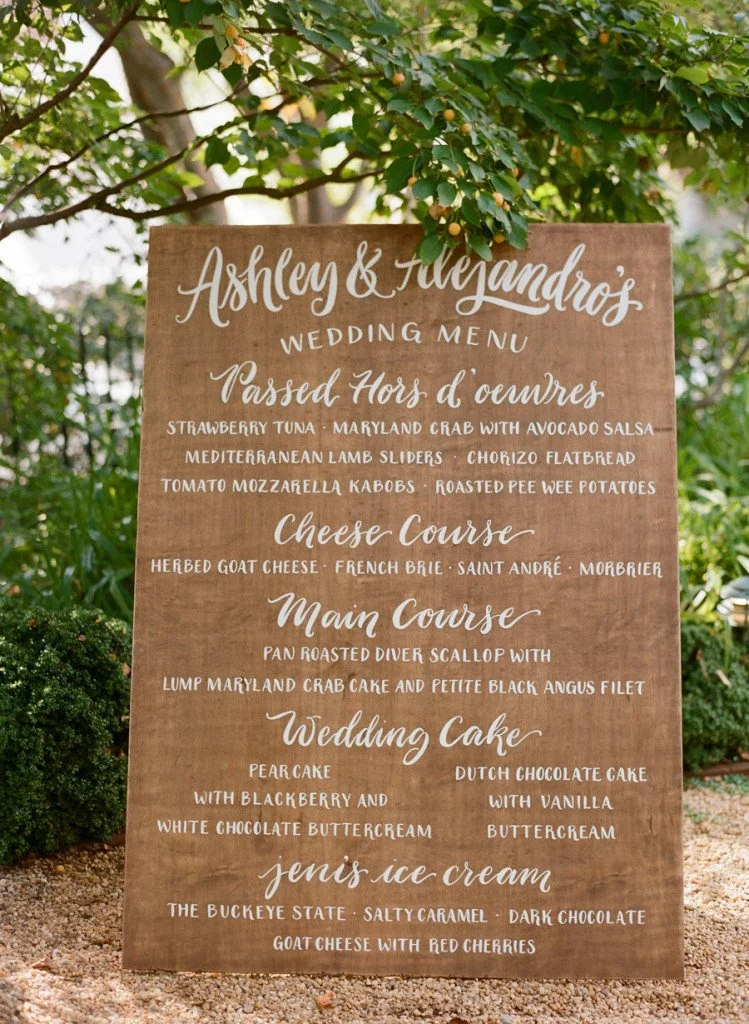 Ashley & Alejandro's
WEDDING MENU
Passed Hors d'oeuvres
STRAWBERRY TUNA · MARYLAND CRAB WITH AVOCADO SALSA
MEDITERRANEAN LAMB SLIDERS · CHORIZO FLATBREAD
TOMATO MOZZARELLA KABOBS · ROASTED PEE WEE POTATOES
Cheese Course
HERBED GOAT CHEESE · FRENCH BRIE · SAINT ANDRÉ · MORBRIER
Main Course
PAN ROASTED DIVER SCALLOP WITH
LUMP MARYLAND CRAB CAKE AND PETITE BLACK ANGUS FILET
Wedding Cake
PEAR CAKE
WITH BLACKBERRY AND
WHITE CHOCOLATE BUTTERCREAM
DUTCH CHOCOLATE CAKE
WITH VANILLA
BUTTERCREAM
jeni's ice cream
THE BUCKEYE STATE · SALTY CARAMEL · DARK CHOCOLATE
GOAT CHEESE WITH RED CHERRIES